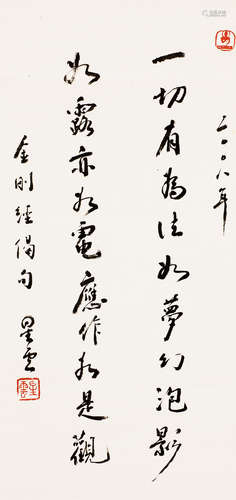 二〇〇八年
一切有為法如夢幻泡影
如露亦如電應作如是觀
金剛經偈句 星雲
星雲